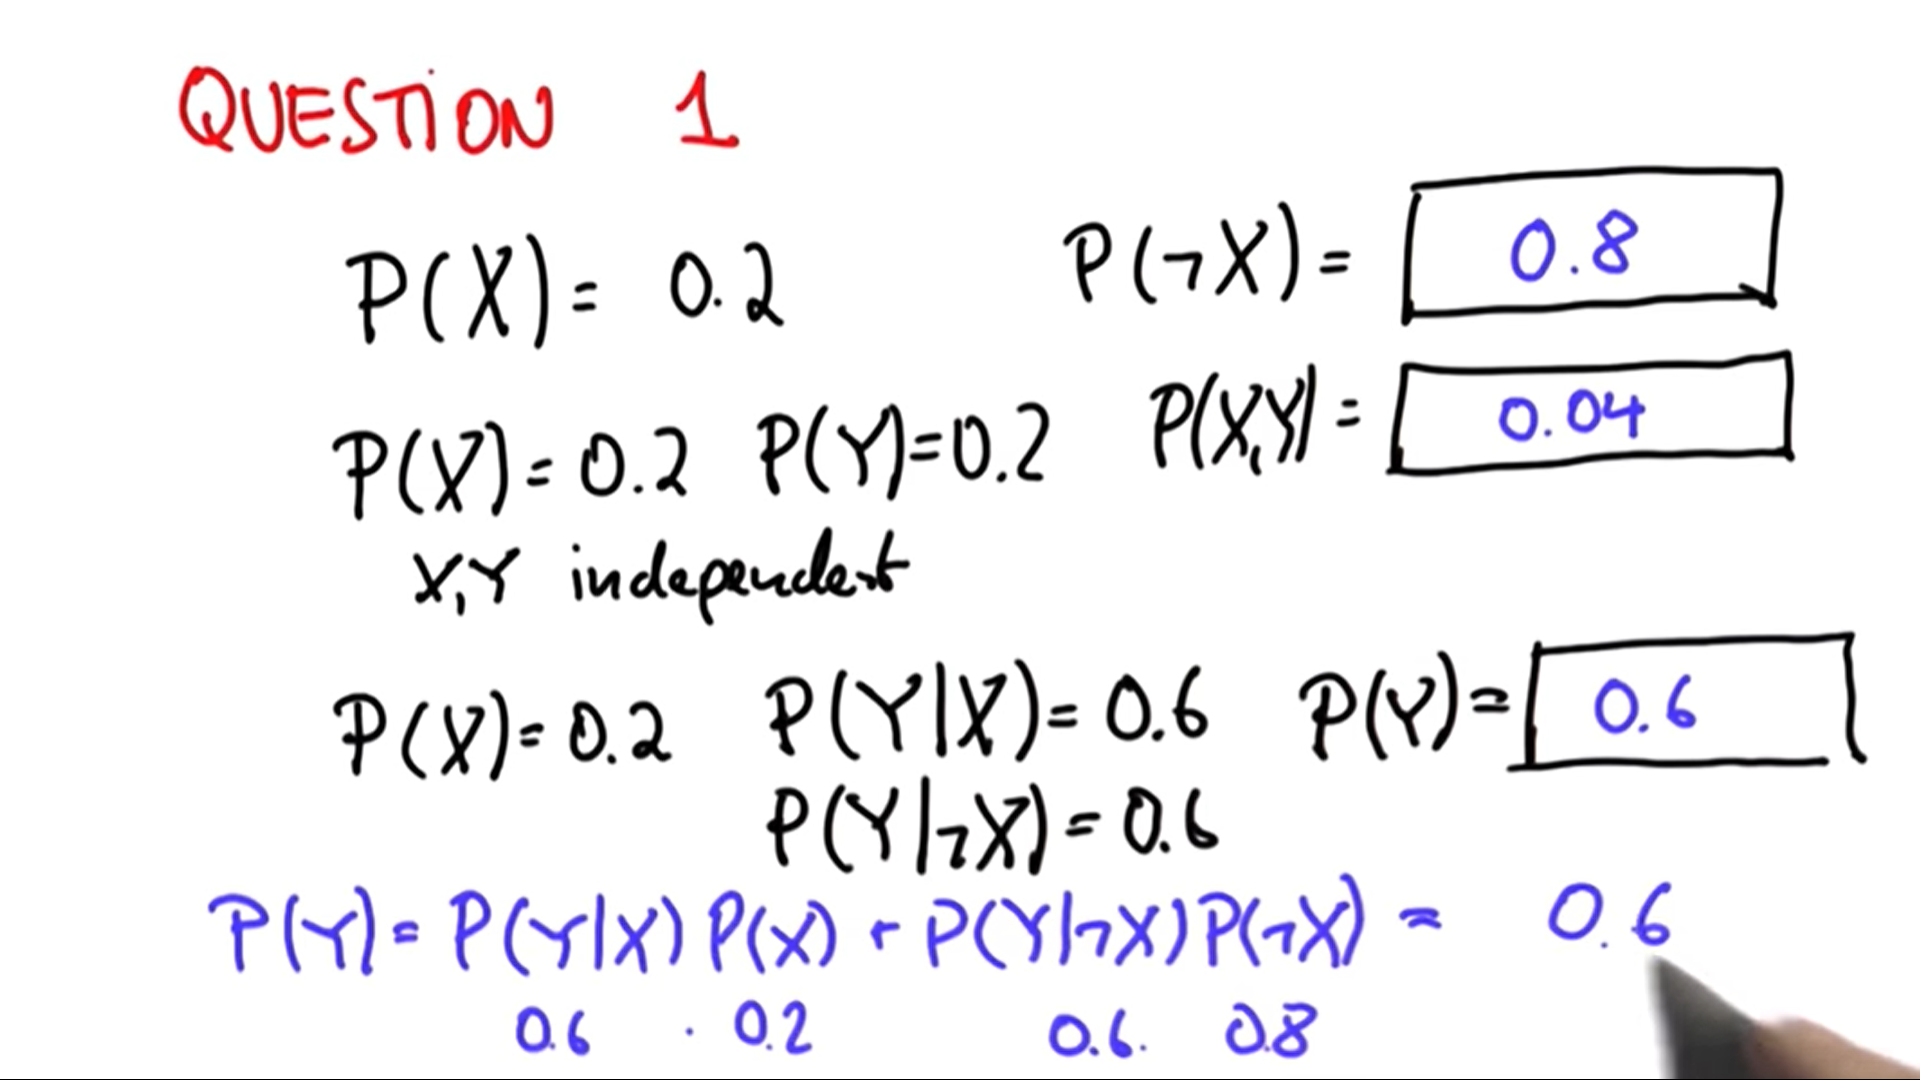 QUESTION 1
P(X) = 0.2
P(¬X) = 0.8
P(X) = 0.2 P(Y) = 0.2
P(X,Y) = 0.04
X,Y independent
P(X) = 0.2 P(Y|X) = 0.6
P(Y) = 0.6
P(Y|¬X) = 0.6
P(Y) = P(Y|X) P(X) + P(Y|¬X) P(¬X) = 0.6
0.6 · 0.2 0.6 · 0.8